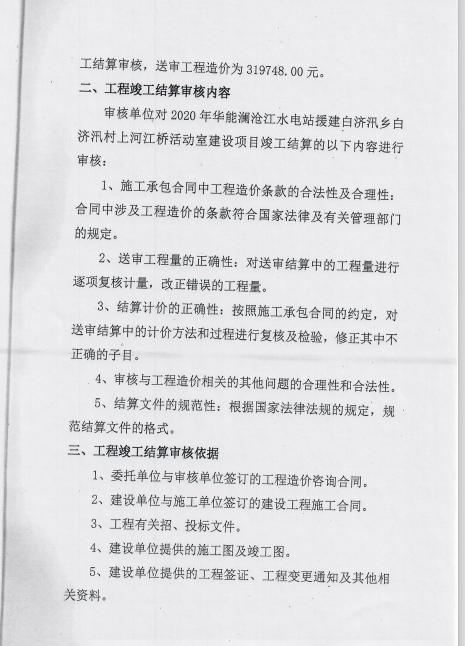 工结算审核，送审工程造价为 319748.00 元。
二、工程竣工结算审核内容
审核单位对 2020 年华能澜沧江水电站援建白济汛乡白
济汛村上河江桥活动室建设项目竣工结算的以下内容进行
审核：
1、施工承包合同中工程造价条款的合法性及合理性：
合同中涉及工程造价的条款符合国家法律及有关管理部门
的规定。
2、送审工程量的正确性：对送审结算中的工程量进行
逐项复核计量，改正错误的工程量。
3、结算计价的正确性：按照施工承包合同的约定，对
送审结算中的计价方法和过程进行复核及检验，修正其中不
正确的子目。
4、审核与工程造价相关的其他问题的合理性和合法性。
5、结算文件的规范性：根据国家法律法规的规定，规
范结算文件的格式。
三、工程竣工结算审核依据
1、委托单位与审核单位签订的工程造价咨询合同。
2、建设单位与施工单位签订的建设工程施工合同。
3、工程有关招、投标文件。
4、建设单位提供的施工图及竣工图。
5、建设单位提供的工程签证、工程变更通知及其他相
关资料。